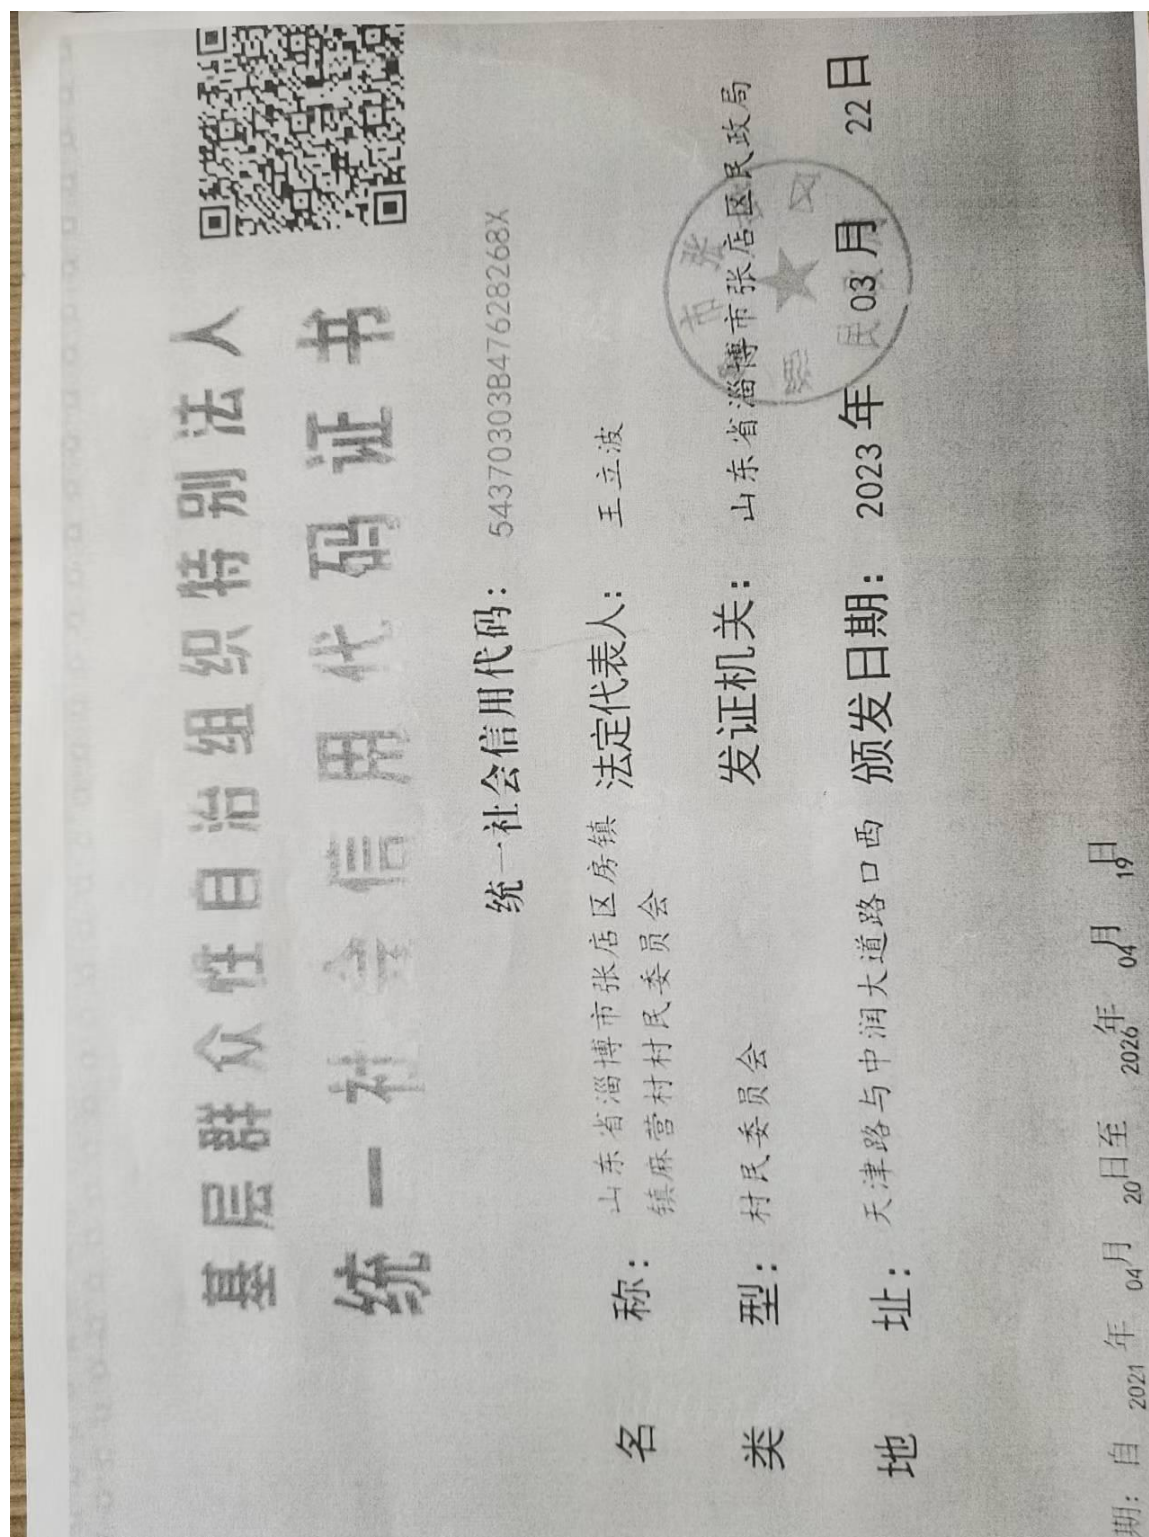 基层群众性自治组织特别法人
统一社会信用代码证书
统一社会信用代码: 54370303B47628268X
名 称: 山东省淄博市张店区房镇
镇麻营村村民委员会
法定代表人: 王立波
类 型: 村民委员会
发证机关: 山东省淄博市张店区民政局
地 址: 天津路与中润大道路口西
颁发日期: 2023年03月22日
期: 自 2021年04月20日至2026年04月19日